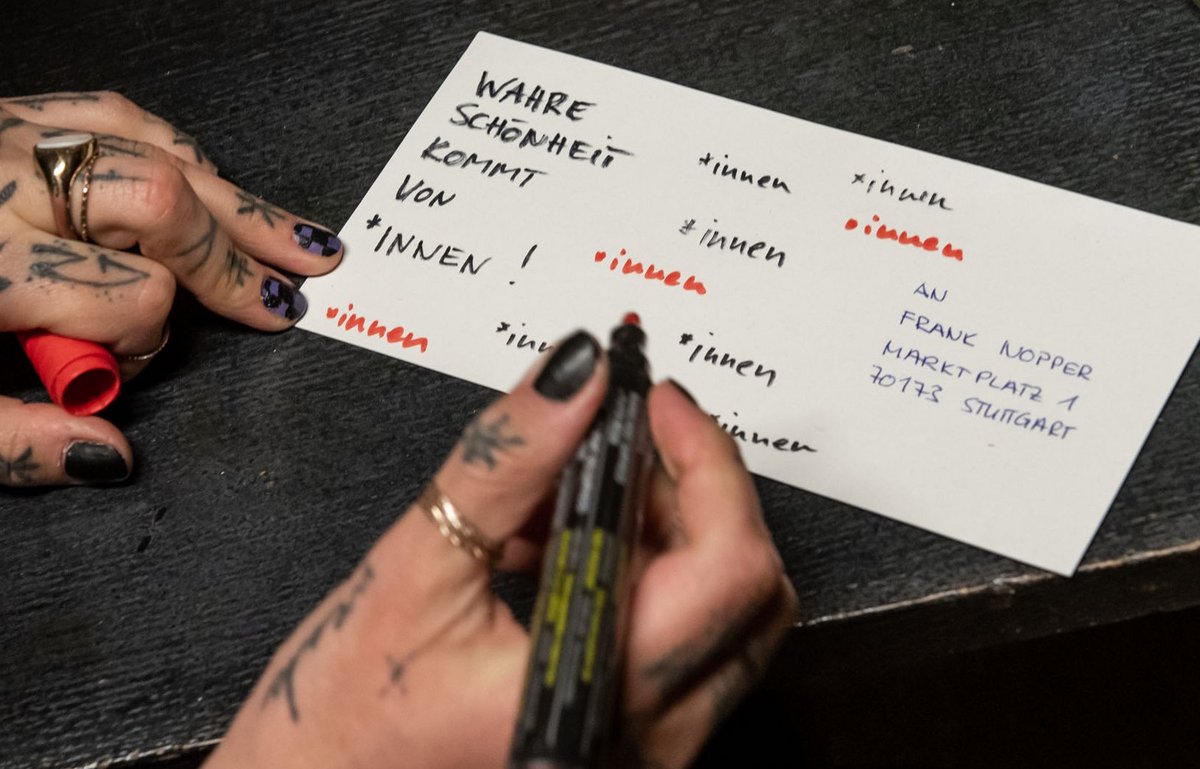 WAHRE
SCHÖNHEIT
KOMMT
VON
*INNEN !
*innen
*innen
*innen
*innen
*innen
*innen
*innen
*innen
AN
FRANK NOPPER
MARKTPLATZ 1
70173 STUTTGART